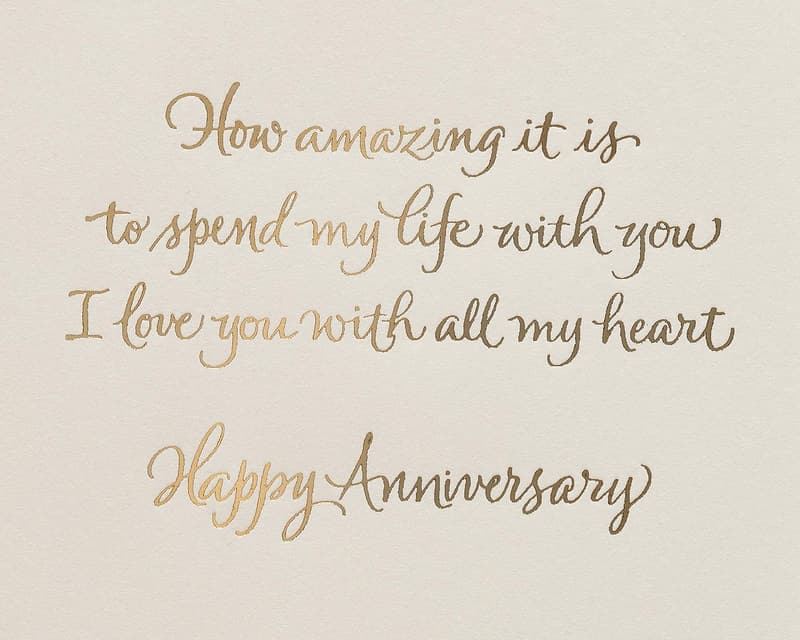 How amazing it is
to spend my life with you
I love you with all my heart
Happy Anniversary